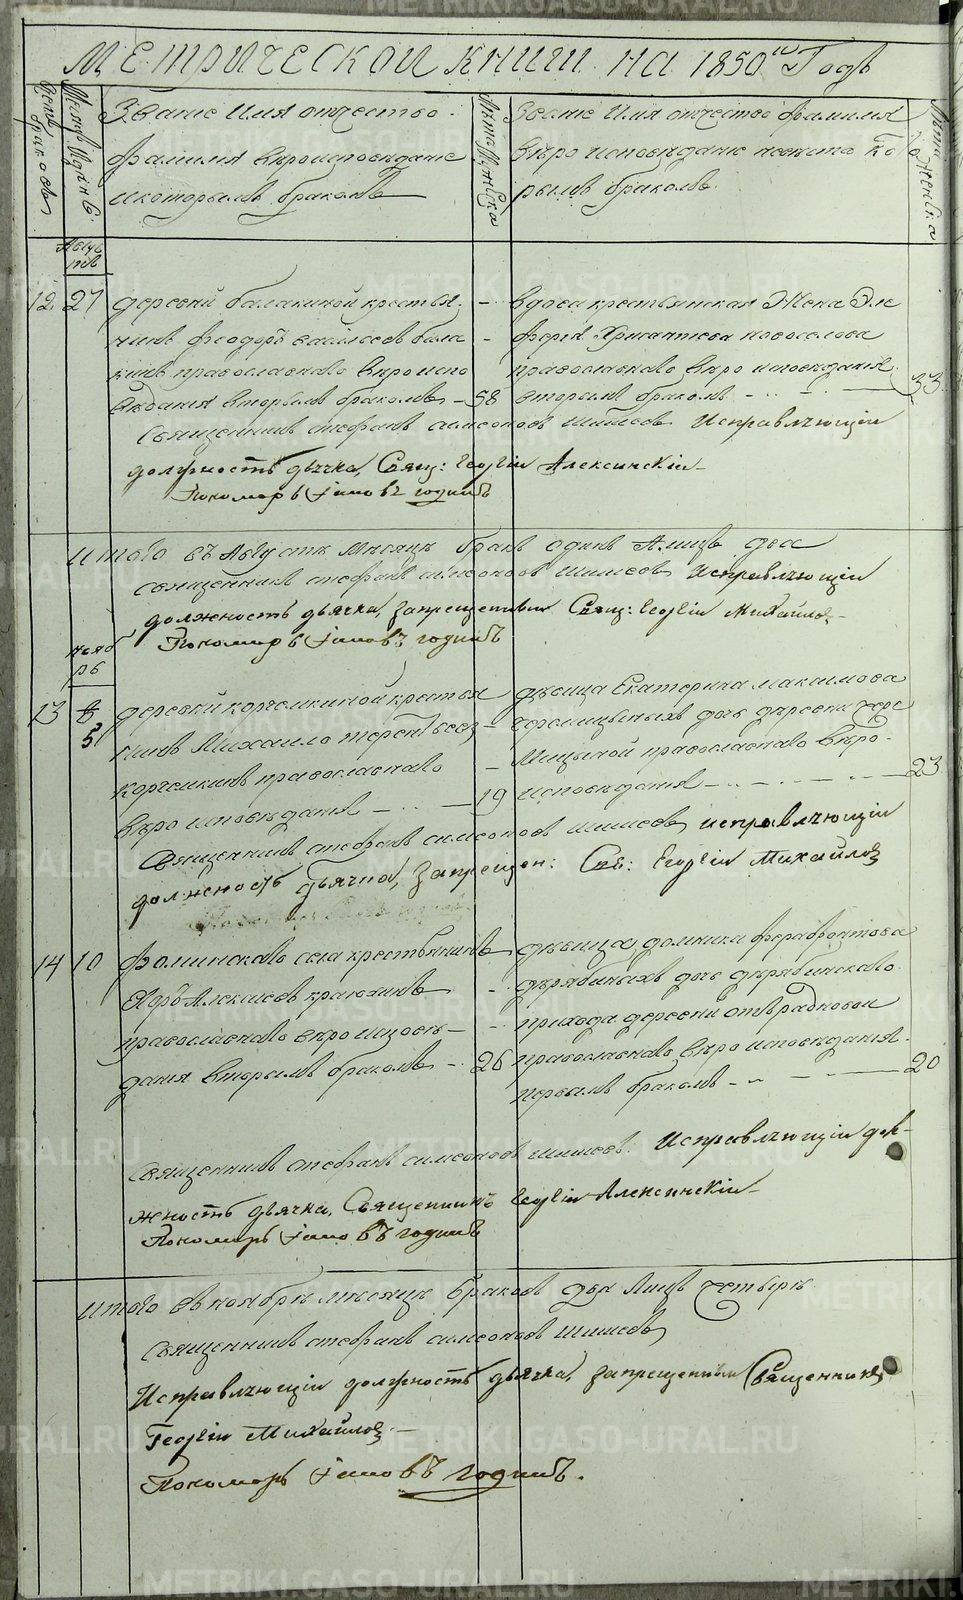 Метрической книги на 1850й Годъ
Щетъ браковъ
Месяцъ и число
Звание Имя отчество
фамилия вероисповедание
и которымъ бракомъ
Лета Жениха
Звание Имя отчество фамилия
веро исповедание невесты кото
рымъ бракомъ
Лета Невесты
Августъ
12 27
деревни балакиной крестья
нинъ Феодоръ бала
кинъ православнаго вероиспо
ведания вторымъ бракомъ 58
вдова крестьянская Жена Эле
новоселова
православнаго веро исповедания
вторымъ бракомъ 33
Священникъ Стефанъ Симеоновъ Шишевъ Исправляющiй
должность дьячка, Свящ: Георгiй Алексинскiй
Пономарь Iаковъ годинъ
итого въ Августе Месяце бракъ одинъ Лицъ два
священникъ стефанъ симеоновъ шишевъ Исправляющiй
должность дьячка, запрещенный Свящ: Георгiй Михайловъ
Пономарь Iаковъ годинъ
Ноябрь
13 5
деревни корчемкиной крестья
нинъ Михаило
корчемкинъ православнаго
веро исповедания 19
девица Екатерина Максимова
дочь деревни чере
мицыной православнаго веро
исповедания 23
Священникъ стефанъ симеоновъ шишевъ исправляющiй
должность дьячка, запрещен: Свя: Георгiй Михайловъ
14 10
Фоминскаго села крестьянинъ
Алексиевъ
православнаго веро исповъ
дания вторымъ бракомъ 26
девица домника
дерябиныхъ дочь дерябинскаго
прихода деревни отрадновой
православнаго веро исповедания
первымъ бракомъ 20
Священникъ стефанъ симеоновъ шишевъ. Исправляющiй дол-
жность дьячка, Священникъ Георгiй Алексинскiй
Пономарь Iаковъ годинъ
итого въ ноябре месяце браковъ два Лицъ четыре
Священникъ стефанъ симеоновъ шишевъ
Исправляющiй должность дьячка, запрещенный Священникъ
Георгiй Михайловъ
Пономарь Iаковъ годинъ.
METRIKI.GASO-URAL.RU